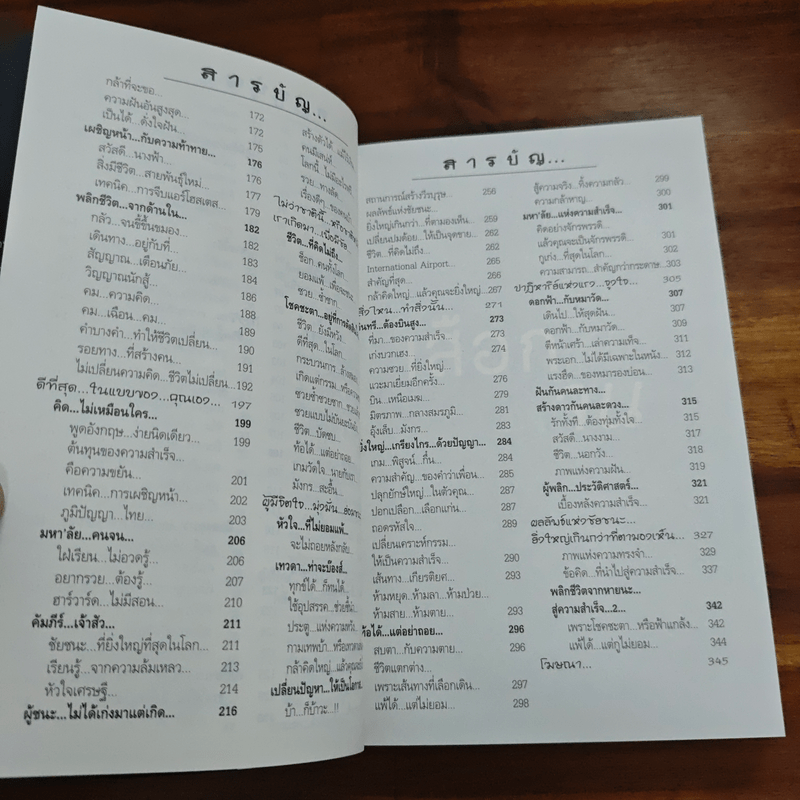 สารบัญ...
กล้าที่จะขอ...
ความฝันอันสูงสุด... 172
เป็นได้...ดั่งใจฝัน... 172
เผชิญหน้า...กับความท้าทาย... 175
สวัสดี...นางฟ้า... 176
สิ่งมีชีวิต...สายพันธุ์ใหม่... 177
เทคนิค...การจีบแอร์โฮสเตส 179
พลิกชีวิต...จากด้านใน... 182
กลัว...จนขี้ขึ้นสมอง... 182
เดินทาง...อยู่กับที่... 183
สัญญาณ...เตือนภัย... 184
วิญญาณนักสู้... 185
คม...ความคิด... 186
คม...เฉือน...คม 188
คำบางคำ...ทำให้ชีวิตเปลี่ยน... 189
รอยทาง...ที่สร้างคน... 190
ไม่เปลี่ยนความคิด...ชีวิตไม่เปลี่ยน...192
ดีที่สุด...ในแบบของ...คุณเอง... 197
คิด...ไม่เหมือนใคร... 199
พูดอังกฤษ...ง่ายนิดเดียว... 199
ต้นทุนของความสำเร็จ...
คือความขยัน... 201
เทคนิค...การเผชิญหน้า... 202
ภูมิปัญญา...ไทย... 203
มหา'ลัย...คนจน... 206
ใฝ่เรียน...ไม่อวดรู้... 206
อยากรวย...ต้องรู้... 207
ฮาร์วาร์ด...ไม่มีสอน... 210
คัมภีร์...เจ้าสัว... 211
ชัยชนะ...ที่ยิ่งใหญ่ที่สุดในโลก... 211
เรียนรู้...จากความล้มเหลว... 213
หัวใจเศรษฐี... 214
ผู้ชนะ...ไม่ได้เก่งมาแต่เกิด... 216
สร้างตัวได้...
คนมีเสน่ห์
โลกนี้...
รวย...ทางลัด
เรื่องดีๆ...
เราเกิดมา...เพื่อมีชัย
ชีวิต...ที่คิดไม่ถึง...
ช็อก...คนทั้งโลก...
ยอมแพ้...เพื่อจะชนะ
ซวย...ซ้ำซาก...
โชคชะตา...อยู่ที่การ
ชีวิต...ยังมีหวัง
ดีที่สุด...ในโลก...
กระบวนการ...
เกิดแต่กรรม...หรือ
ซวยซ้ำซวยซาก...
ซวยแบบไม่บันยะบันยัง
ชีวิต...บัดซบ...
ท้อได้...แต่อย่าถอย...
เกมวัดใจ...นายกับเรา
มังกร...สะอื้น...
ผู้มีจิตใจ...มุ่งมั่น...
หัวใจ...ที่ไม่ยอมแพ้...
จะไม่ถอยหลังกลับ
เทวดา...ท่าจะบ๊องส์
ทุกข์ได้...ก็ทนได้...
ใช้อุปสรรค...
ประตู...แห่งความหวัง
กามเทพบ้า...หรือ
กล้าคิดใหญ่...แล้วคุณจะ
เปลี่ยนปัญหา...ให้เป็นโอกาส
บ้า...ก็บ้าวะ...!!
สารบัญ...
สถานการณ์สร้างวีรบุรุษ... 256
ผลลัพธ์แห่งชัยชนะ...
ยิ่งใหญ่เกินกว่า...ที่ตามองเห็น... 259
เปลี่ยนปมด้อย...ให้เป็นจุดขาย... 262
ชีวิต...ที่คิดไม่ถึง... 262
International Airport... 265
สำคัญที่สุด... 266
กล้าคิดใหญ่...แล้วคุณจะยิ่งใหญ่ 267
สิ่งไหน...ทำสิ่งนั้น... 271
ต้องบินสูง... 273
ที่มา...ของความสำเร็จ 273
เก่งบวกเฮง... 274
ความซวย...ที่ยิ่งใหญ่...
แวะมาเยี่ยมอีกครั้ง... 276
บิน...เหนือเมฆ... 279
มิตรภาพ...กลางสมรภูมิ... 281
อุ้งเล็บ...มังกร... 282
ยิ่งใหญ่...เกรียงไกร...ด้วยปัญญา... 284
เกม...พิสูจน์...กึ๋น... 284
ความสำคัญ...ของคำว่าเพื่อน... 285
ปลุกยักษ์ใหญ่...ในตัวคุณ... 287
ปอกเปลือก...เลือกแก่น... 287
ถอดรหัสใจ... 289
เปลี่ยนเคราะห์กรรม...
ให้เป็นความสำเร็จ... 290
เส้นทาง...เกียรติยศ... 293
ห้ามหยุด...ห้ามลา...ห้ามป่วย...
ห้ามสาย...ห้ามตาย... 293
ท้อได้...แต่อย่าถอย... 296
สบตา...กับความตาย... 296
ชีวิตแตกต่าง...
เพราะเส้นทางที่เลือกเดิน... 297
แพ้ได้...แต่ไม่ยอม... 298
สู้ความจริง...ทิ้งความกลัว... 299
ความกล้าหาญ... 300
มหา'ลัย...แห่งความสำเร็จ... 301
คิดอย่างจักรพรรดิ... 301
แล้วคุณจะเป็นจักรพรรดิ... 301
กูเก่ง...ที่สุดในโลก... 302
ความสามารถ...สำคัญกว่ากระดาษ... 303
ปาฏิหาริย์แห่งแรงจูงใจ... 305
ดอกฟ้า...กับหมาวัด... 307
เดินไป...ให้สุดฝัน... 307
ดอกฟ้า...กับหมาวัด... 309
ตีหน้าเศร้า...เล่าความเท็จ... 311
พระเอก...ไม่ได้มีเฉพาะในหนัง... 312
แรงฮึด...ของหมารองบ่อน... 313
ฝันกันคนละทาง...
สร้างดาวกันคนละดวง... 315
รักทั้งที...ต้องทุ่มทั้งใจ... 315
สวัสดี...นางงาม... 317
ชีวิต...นอกวัง... 318
ภาพแห่งความฝัน... 319
ผู้พลิก...ประวัติศาสตร์... 321
เบื้องหลังความสำเร็จ... 321
ผลลัพธ์แห่งชัยชนะ...
ยิ่งใหญ่เกินกว่าที่ตามองเห็น... 327
ภาพแห่งความทรงจำ... 329
ข้อคิด...ที่นำไปสู่ความสำเร็จ... 337
พลิกชีวิตจากหายนะ...
สู่ความสำเร็จ...2... 342
เพราะโชคชะตา...หรือฟ้าแกล้ง... 342
แพ้ได้...แต่กูไม่ยอม... 344
โฆษณา... 345